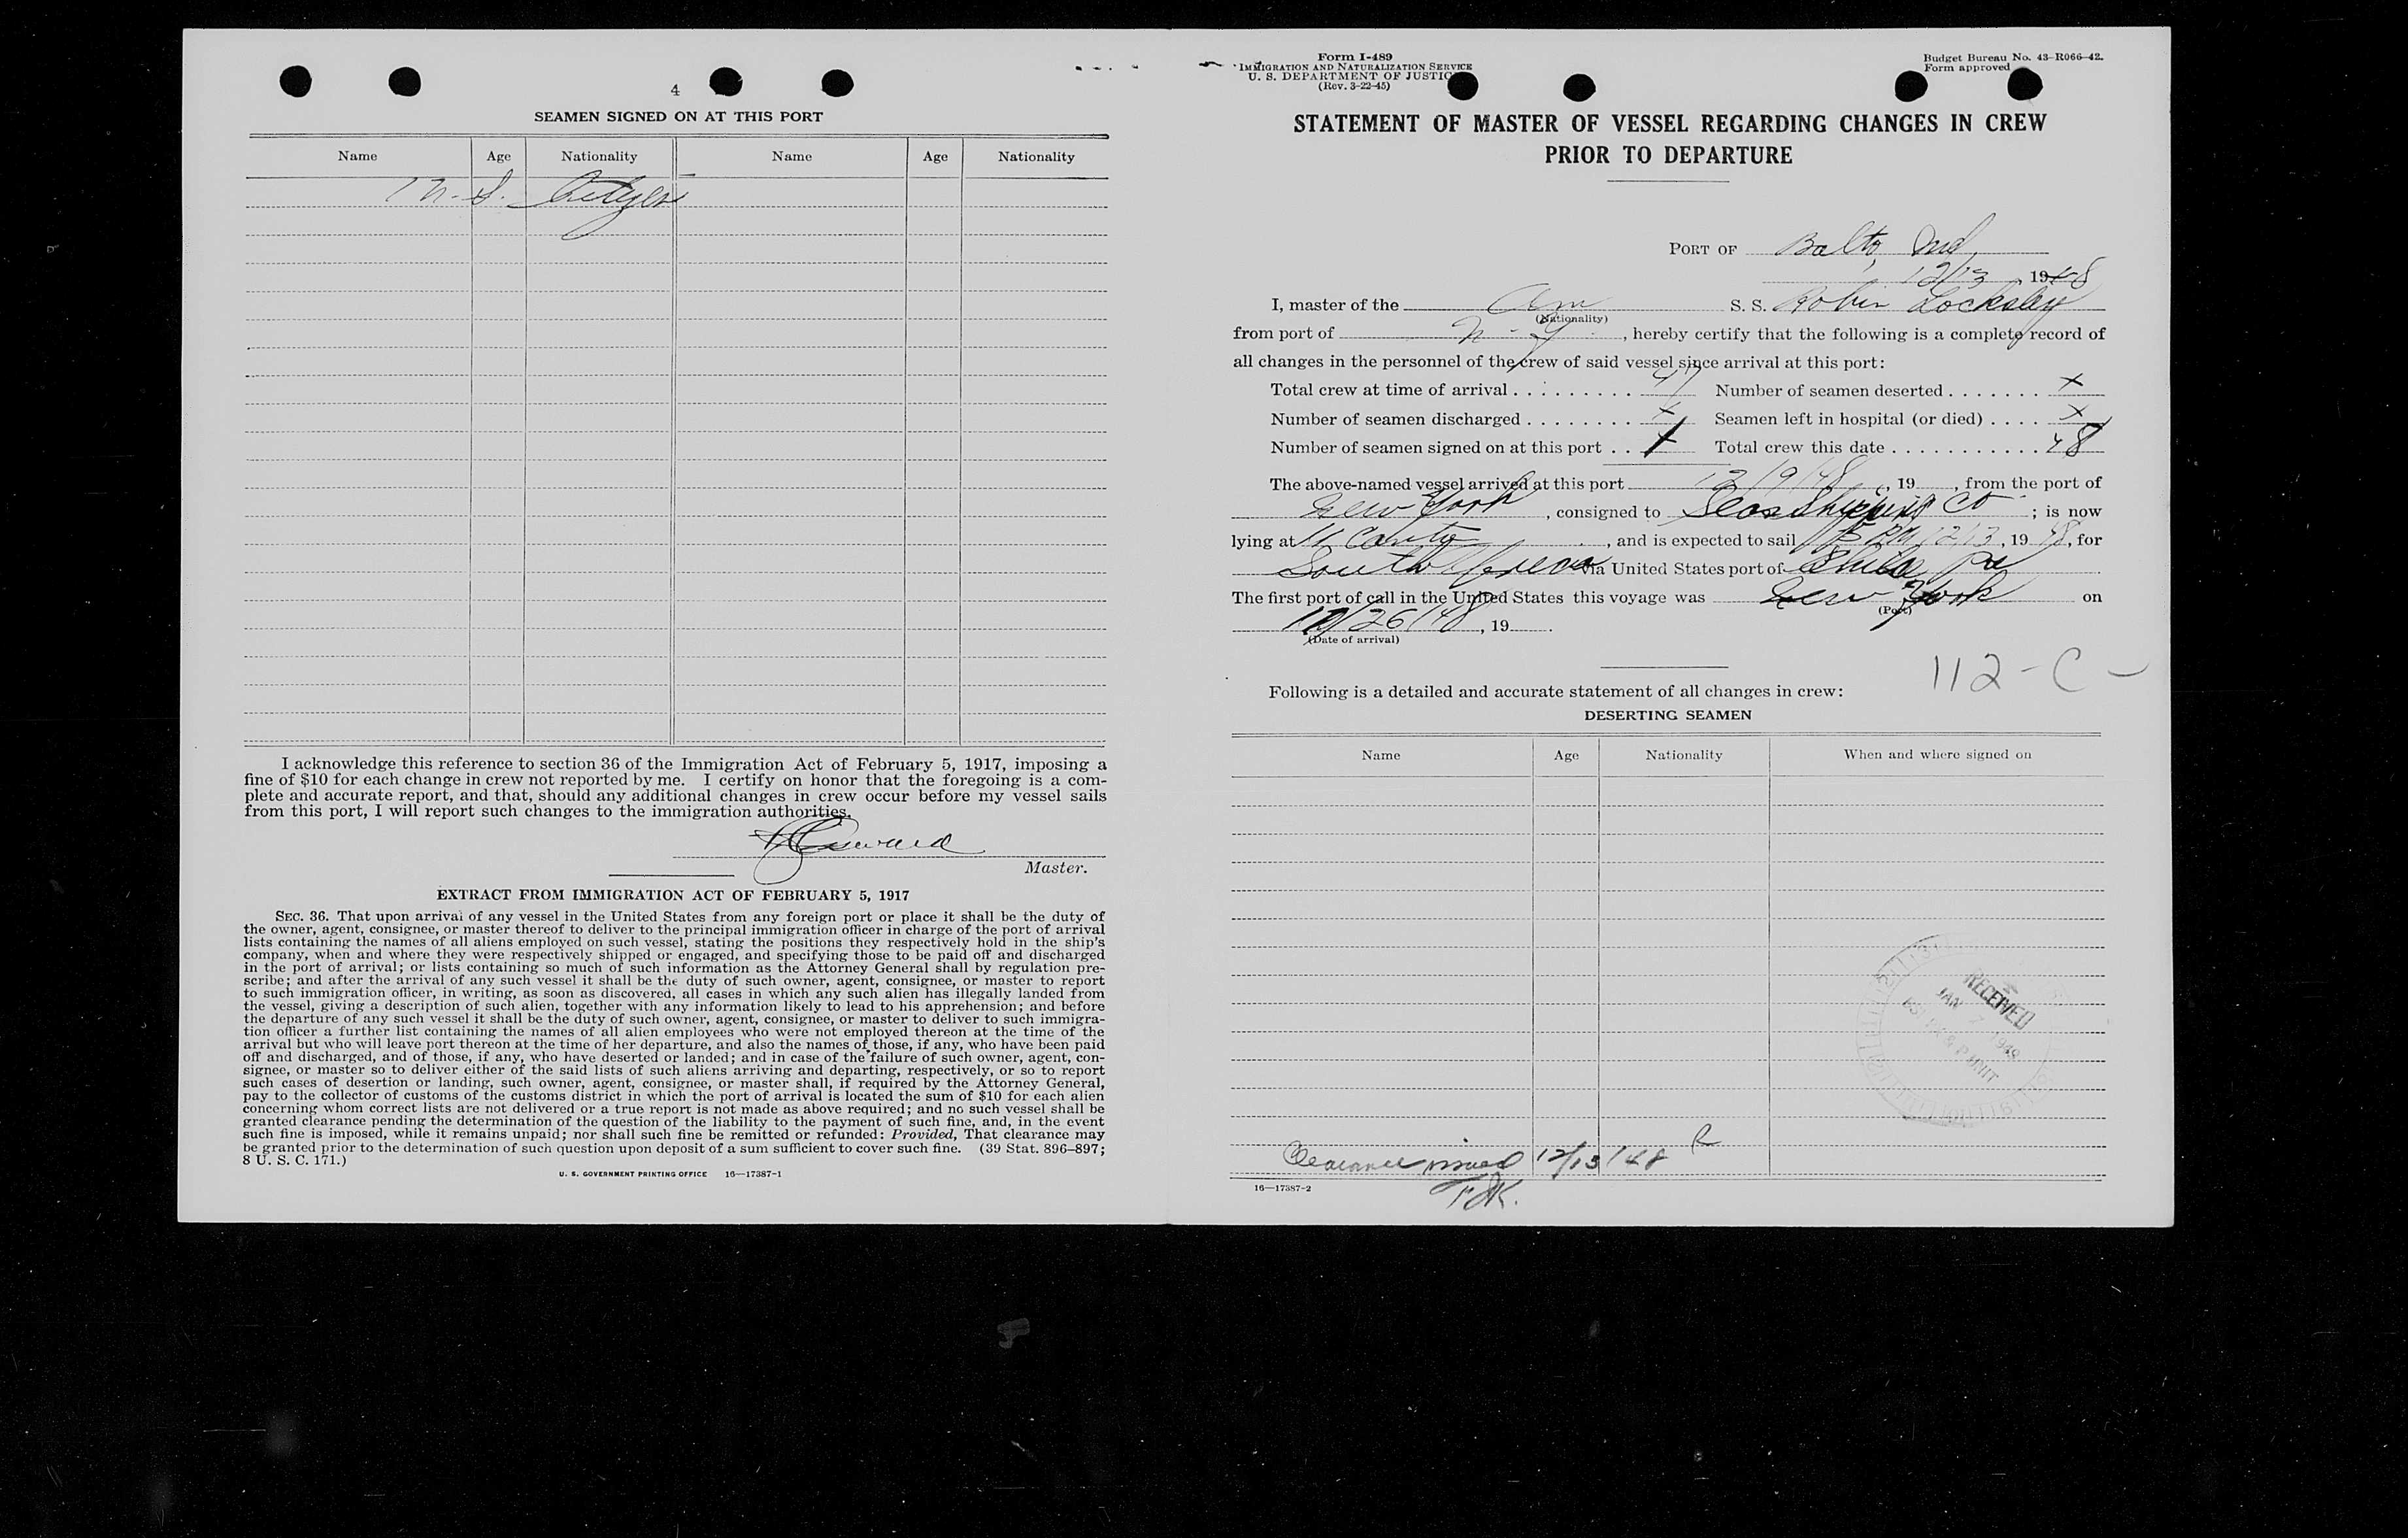 4
SEAMEN SIGNED ON AT THIS PORT
Name Age Nationality Name Age Nationality
I acknowledge this reference to section 36 of the Immigration Act of February 5, 1917, imposing a
fine of $10 for each change in crew not reported by me. I certify on honor that the foregoing is a com-
plete and accurate report, and that, should any additional changes in crew occur before my vessel sails
from this port, I will report such changes to the immigration authorities.
Master.
EXTRACT FROM IMMIGRATION ACT OF FEBRUARY 5, 1917
SEC. 36. That upon arrival of any vessel in the United States from any foreign port or place it shall be the duty of
the owner, agent, consignee, or master thereof to deliver to the principal immigration officer in charge of the port of arrival
lists containing the names of all aliens employed on such vessel, stating the positions they respectively hold in the ship's
company, when and where they were respectively shipped or engaged, and specifying those to be paid off and discharged
in the port of arrival; or lists containing so much of such information as the Attorney General shall by regulation pre-
scribe; and after the arrival of any such vessel it shall be the duty of such owner, agent, consignee, or master to report
to such immigration officer, in writing, as soon as discovered, all cases in which any such alien has illegally landed from
the vessel, giving a description of such alien, together with any information likely to lead to his apprehension; and before
the departure of any such vessel it shall be the duty of such owner, agent, consignee, or master to deliver to such immigra-
tion officer a further list containing the names of all alien employees who were not employed thereon at the time of the
arrival but who will leave port thereon at the time of her departure, and also the names of those, if any, who have been paid
off and discharged, and of those, if any, who have deserted or landed; and in case of the failure of such owner, agent, con-
signee, or master so to deliver either of the said lists of such aliens arriving and departing, respectively, or so to report
such cases of desertion or landing, such owner, agent, consignee, or master shall, if required by the Attorney General,
pay to the collector of customs of the customs district in which the port of arrival is located the sum of $10 for each alien
concerning whom correct lists are not delivered or a true report is not made as above required; and no such vessel shall be
granted clearance pending the determination of the question of the liability to the payment of such fine, and, in the event
such fine is imposed, while it remains unpaid; nor shall such fine be remitted or refunded: Provided, That clearance may
be granted prior to the determination of such question upon deposit of a sum sufficient to cover such fine. (39 Stat. 896–897;
8 U. S. C. 171.)
U. S. GOVERNMENT PRINTING OFFICE 16—17387-1
Form I-489
IMMIGRATION AND NATURALIZATION SERVICE
U. S. DEPARTMENT OF JUSTICE
(Rev. 3-22-45)
Budget Bureau No. 43–R066–42.
Form approved
STATEMENT OF MASTER OF VESSEL REGARDING CHANGES IN CREW
PRIOR TO DEPARTURE
PORT OF Balto, Md,
12/13, 1948
I, master of the Am S. S. Robin Locksley
(Nationality)
from port of N-Y, hereby certify that the following is a complete record of
all changes in the personnel of the crew of said vessel since arrival at this port:
Total crew at time of arrival 47 Number of seamen deserted x
Number of seamen discharged x Seamen left in hospital (or died) x
Number of seamen signed on at this port 1 Total crew this date 48
The above-named vessel arrived at this port 12/9/48, 19, from the port of
New York, consigned to Seas Shipping Co; is now
lying at Canton, and is expected to sail 5 PM 12/13, 1948, for
South Africa via United States port of Phila, Pa
The first port of call in the United States this voyage was New York on
(Port)
26/48, 19.
(Date of arrival)
112-C-
Following is a detailed and accurate statement of all changes in crew:
DESERTING SEAMEN
Name Age Nationality When and where signed on
RECEIVED
JAN 7 1949
& P UNIT
R
Clearance issued 12/13/48
16—17387-2